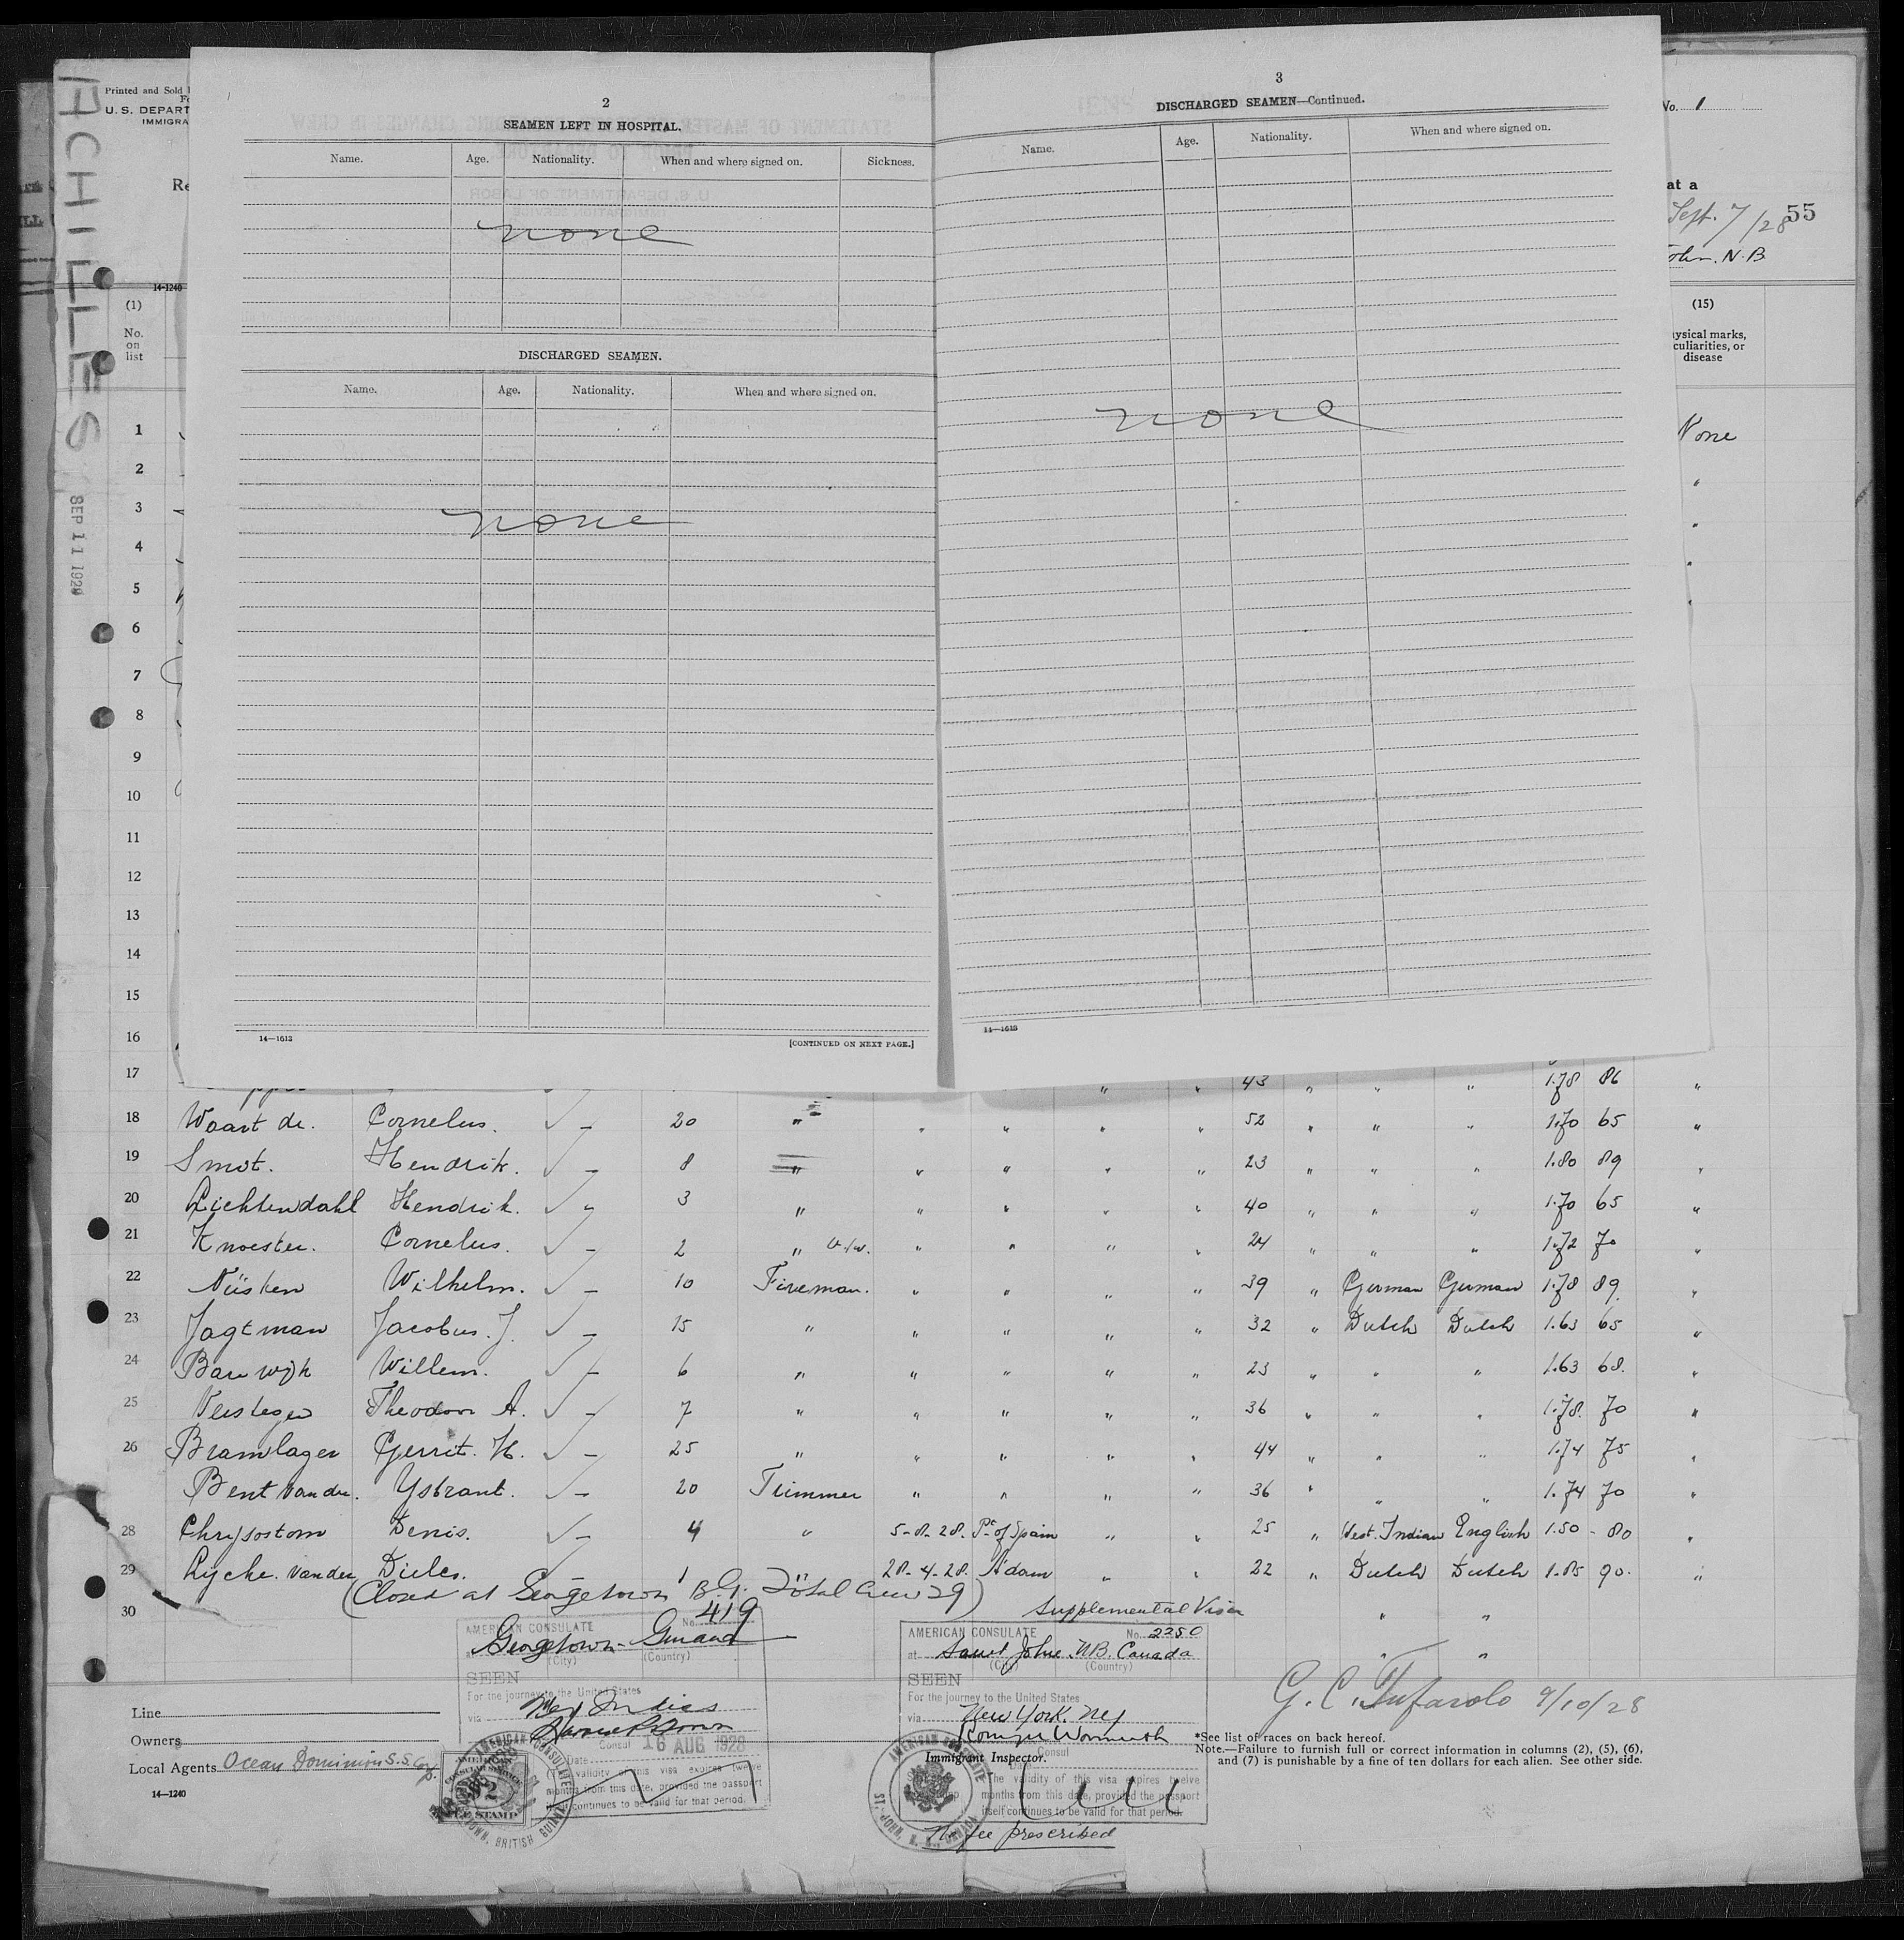 ACHILLES
SEP 11 1928
Printed and Sold
U. S. DEPART
IMMIGRA
Re
14-1240
(1)
No. on list
2
SEAMEN LEFT IN HOSPITAL.
Name. Age. Nationality. When and where signed on. Sickness.
none
DISCHARGED SEAMEN.
Name. Age. Nationality. When and where signed on.
none
14—1613
[CONTINUED ON NEXT PAGE.]
3
DISCHARGED SEAMEN—Continued.
Name. Age. Nationality. When and where signed on.
none
14—1613
No. 1
at a
Sept. 7/28 55
John. N.B.
(15)
ysical marks,
culiarities, or
disease
1 None
2 "
3 "
4 "
5 "
6
7
8
9
10
11
12
13
14
15
16
17 " " 43 " " " 1.78 86 "
18 Waart de. Cornelus. ✓ — 20 " " " " " 52 " " " 1.70 65 "
19 Smot. Hendrik. ✓ — 8 " " " " " 23 " " " 1.80 89 "
20 Lichtendahl Hendrik. ✓ " 3 " " " " " 40 " " " 1.70 65 "
21 Knoester. Cornelus. ✓ — 2 " " " " " 24 " " " 1.72 70 "
22 Nüsken Wilhelm. ✓ — 10 Fireman. " " " " 39 " German German 1.78 89. "
23 Jagtman Jacobus. J. ✓ — 15 " " " " " 32 " Dutch Dutch 1.63 65 "
24 Barwyk Willem. ✓ — 6 " " " " " 23 " " " 1.63 68. "
25 Versteger Theodoor A. ✓ — 7 " " " " " 36 " " " 1.78. 70 "
26 Bramlager Gerrit. H. ✓ — 25 " " " " " 44 " " " 1.74 75 "
Bent van der. Ysbrant. ✓ — 20 Trimmer " " " " 36 " " " 1.74 70 "
28 Chrysostom Denis. ✓ — 4 " 5-8-28. Pt of Spain " " 25 " West. Indian English 1.50 - 80 "
29 Lycke. van der Dirles. ✓ 1 " 28-4-28. A'dam " " 22 " Dutch Dutch 1.85 90. "
(Closed at Georgetown B.G. Total Crew 29)
30 " "
Supplemental Visa
AMERICAN CONSULATE No. 419
at Georgetown - Guiana
(City) (Country)
SEEN
For the journey to the United States
via West Indies
Consul 16 AUG 1928
Date
(The validity of this visa expires twelve
months from this date, provided the passport
itself continues to be valid for that period.
AMERICAN CONSULAR SERVICE
2
FEE STAMP
AMERICAN CONSULATE
GEORGETOWN, BRITISH GUIANA
AMERICAN CONSULATE No. 2250
at Saint John N.B. Canada
(City) (Country)
SEEN
For the journey to the United States
via New York. N.Y.
Romeyn Wormuth
Consul
Immigrant Inspector.
Date
The validity of this visa expires twelve
months from this date, provided the passport
itself continues to be valid for that period.
AMERICAN CONSULATE
ST. JOHN, N. B., CANADA
No fee prescribed
G. C. Tufarolo 9/10/28
Line
Owners
Local Agents Ocean Dominion S.S. Corp.
14—1240
*See list of races on back hereof.
Note.—Failure to furnish full or correct information in columns (2), (5), (6),
and (7) is punishable by a fine of ten dollars for each alien. See other side.